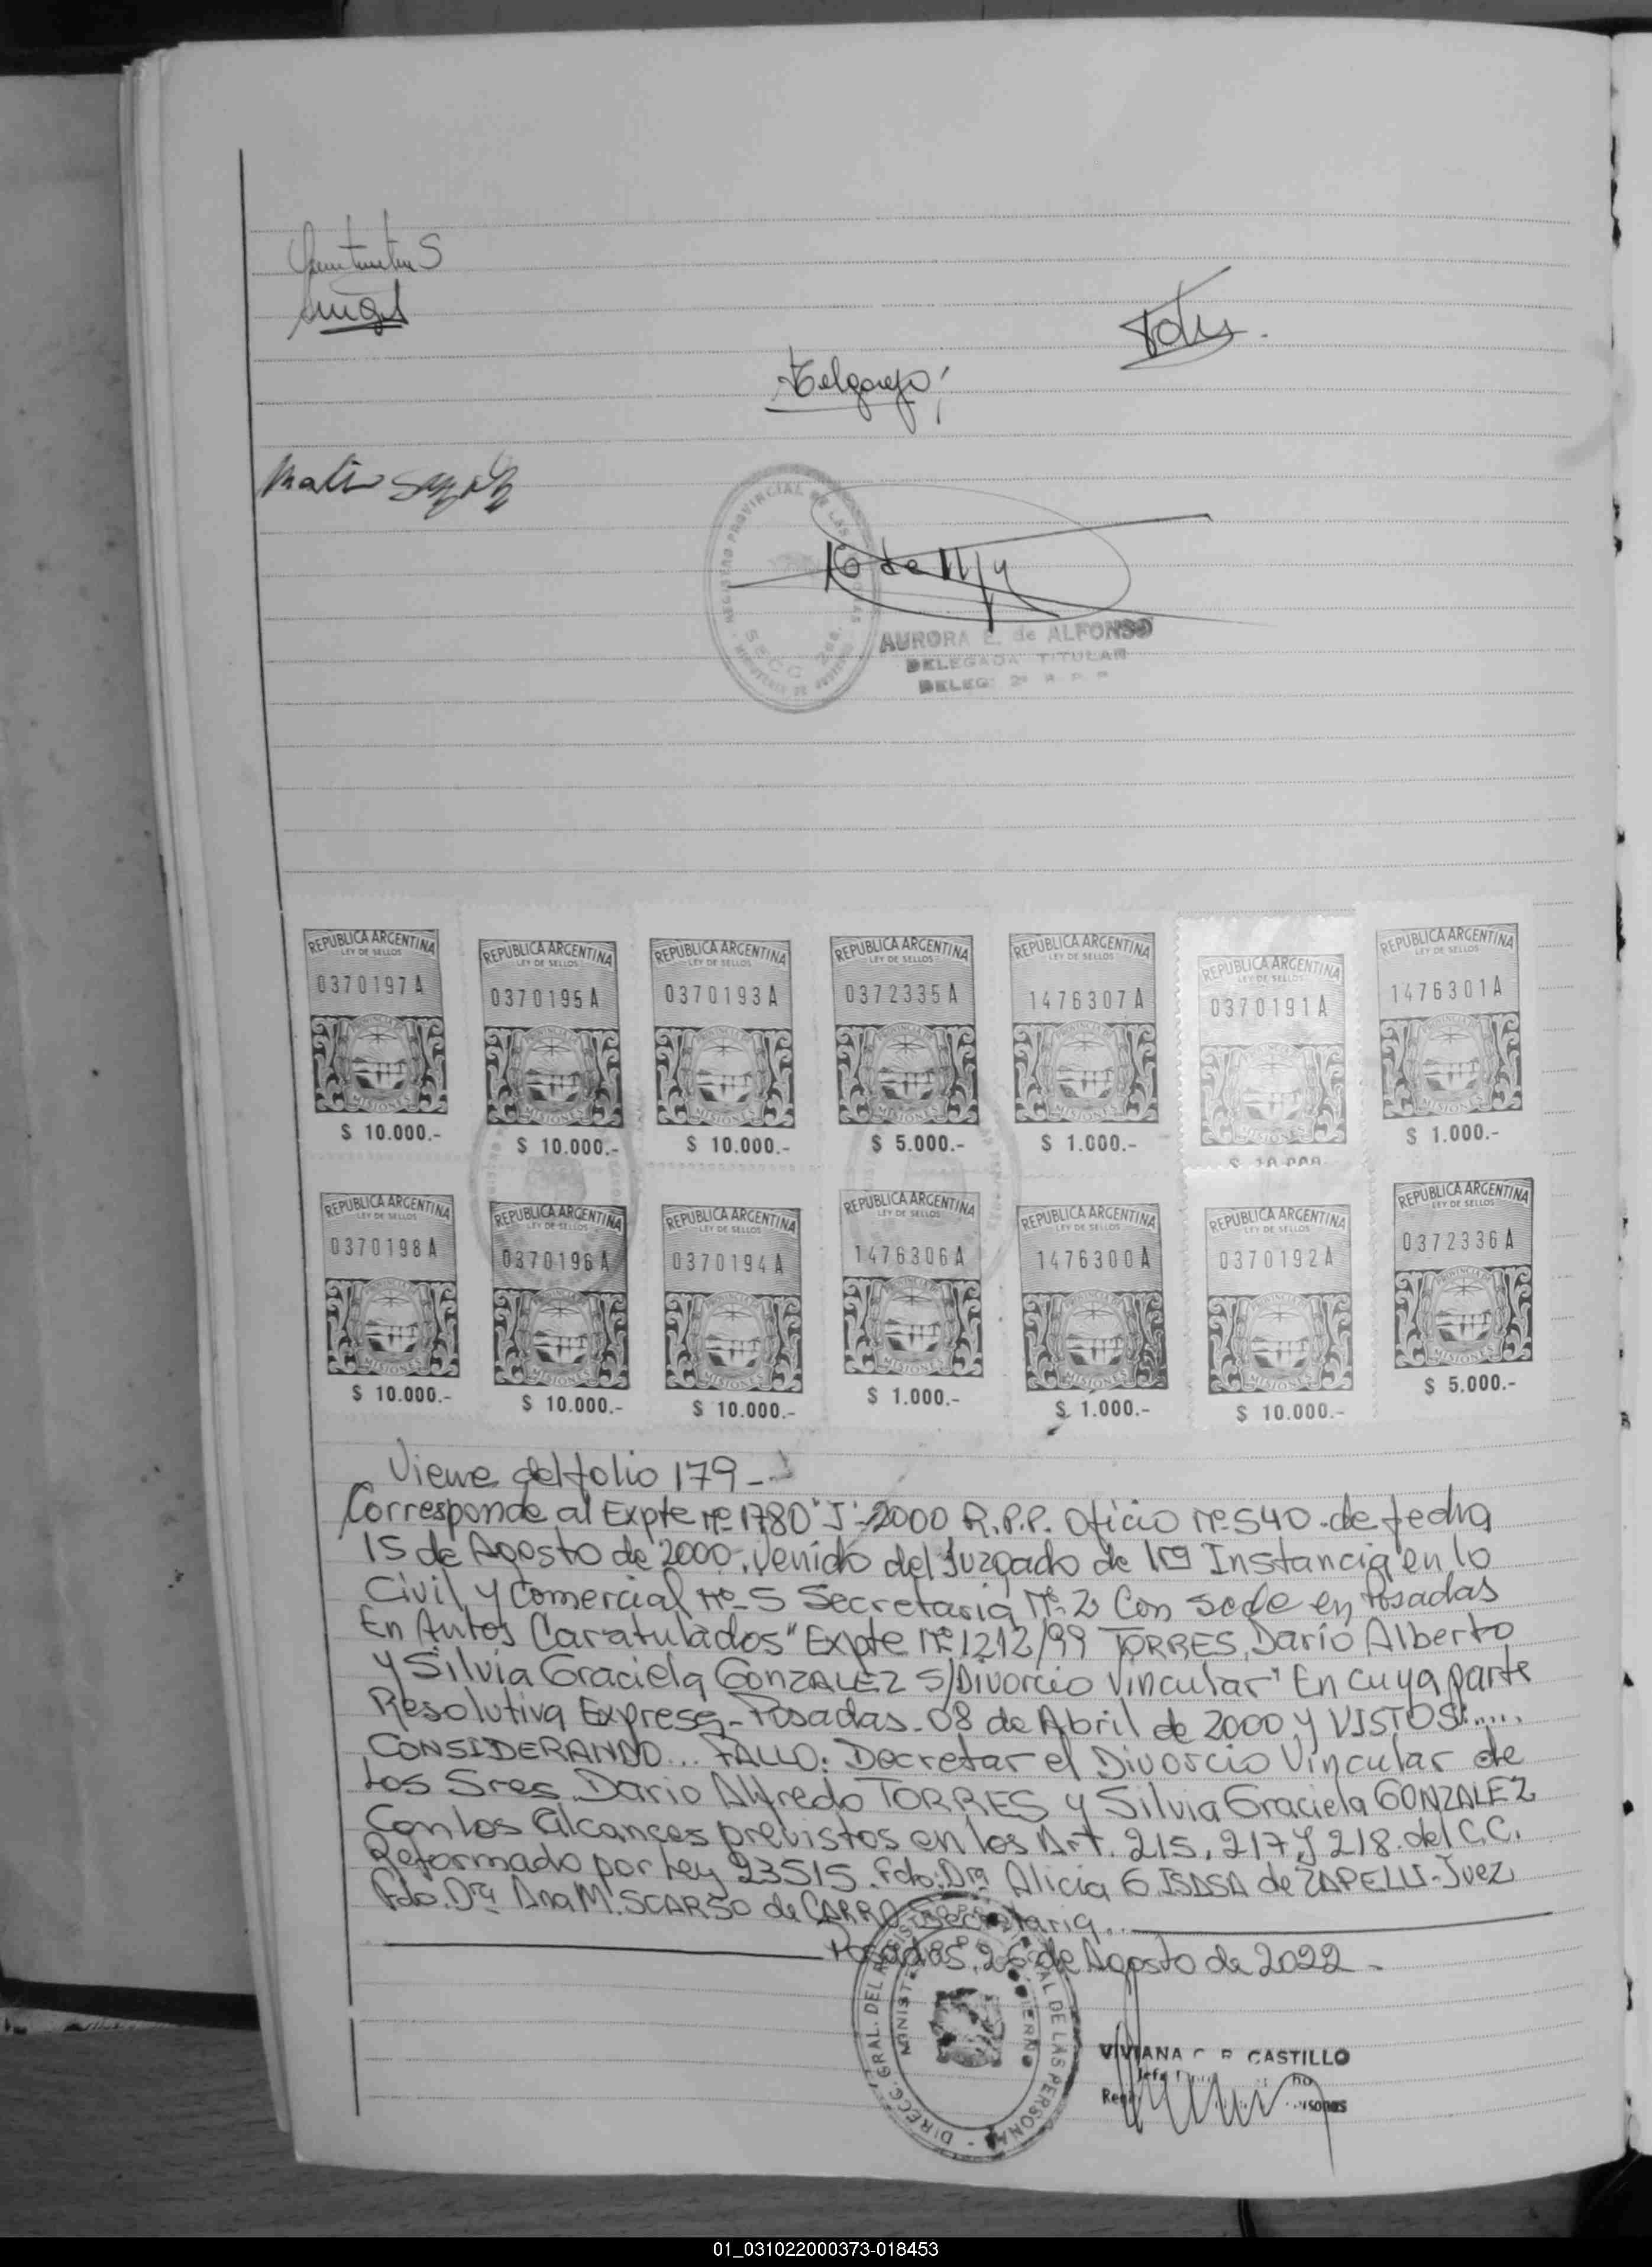 AURORA E. de ALFONSO
DELEGADA TITULAR
DELEG. 2ª R. P. P.
REPUBLICA ARGENTINA
LEY DE SELLOS
0370197A
PROVINCIA DE
MISIONES
$ 10.000.-
REPUBLICA ARGENTINA
LEY DE SELLOS
0370195A
MISIONES
$ 10.000.-
REPUBLICA ARGENTINA
LEY DE SELLOS
0370193A
MISIONES
$ 10.000.-
REPUBLICA ARGENTINA
LEY DE SELLOS
0372335A
MISIONES
$ 5.000.-
REPUBLICA ARGENTINA
LEY DE SELLOS
1476307A
MISIONES
$ 1.000.-
REPUBLICA ARGENTINA
LEY DE SELLOS
0370191A
MISIONES
$ 10.000.
REPUBLICA ARGENTINA
LEY DE SELLOS
1476301A
MISIONES
$ 1.000.-
REPUBLICA ARGENTINA
LEY DE SELLOS
0370198A
MISIONES
$ 10.000.-
REPUBLICA ARGENTINA
LEY DE SELLOS
0370196A
MISIONES
$ 10.000.-
REPUBLICA ARGENTINA
LEY DE SELLOS
0370194A
MISIONES
$ 10.000.-
REPUBLICA ARGENTINA
LEY DE SELLOS
1476306A
MISIONES
$ 1.000.-
REPUBLICA ARGENTINA
LEY DE SELLOS
1476300A
MISIONES
$ 1.000.-
REPUBLICA ARGENTINA
LEY DE SELLOS
0370192A
MISIONES
$ 10.000.-
REPUBLICA ARGENTINA
LEY DE SELLOS
0372336A
MISIONES
$ 5.000.-
Viene del folio 179-
Corresponde al Expte Nº 1780 "J"-2000 R.P.P. Oficio Nº 540. de fecha
15 de Agosto de 2000. Venido del Juzgado de 1ra Instancia en lo
Civil y Comercial Nº-5 Secretaria Nº-2 Con sede en Posadas
En Autos Caratulados "Expte Nº 1212/99 TORRES, Darío Alberto
y Silvia Graciela GONZALEZ S/Divorcio Vincular" En cuya parte
Resolutiva Expresa- Posadas. 08 de Abril de 2000 y VISTOS:.....
CONSIDERANDO... FALLO: Decretar el Divorcio Vincular de
Los Sres. Dario Alfredo TORRES y Silvia Graciela GONZALEZ
Con los alcances previstos en los Art. 215, 217 y 218. del C.C.
Reformado por Ley 23515. Fdo: Dra Alicia G. ISASA de ZAPELLI-Juez
Fdo. Dra Ana M. SCARSO de CARRO Secretaria..
Posadas, 26 de Agosto de 2022-
DIRECC. GRAL. DEL REGISTRO PROVINCIAL DE LAS PERSONAS
VIVIANA C. R. CASTILLO
01_031022000373-018453